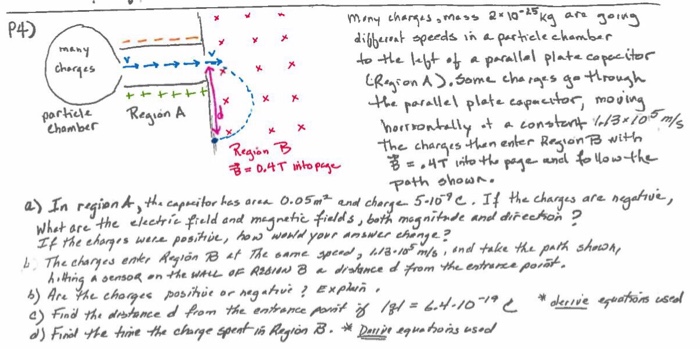 P4)
many
charges
particle
chamber
- - - - - -
v
v
+ + + + + +
Region A
d
x x x
Region B
B⃗ = 0.4T into page
Many charges, mass 2×10⁻²⁵ kg are going
different speeds in a particle chamber
to the left of a parallel plate capacitor
(Region A). Some charges go through
the parallel plate capacitor, moving
horizontally at a constant 1.13×10⁵ m/s
The charges then enter Region B with
B⃗ = .4T into the page and follow the
path shown.
a) In region A, the capacitor has area 0.05m² and charge 5·10⁻⁹ C. If the charges are negative,
What are the electric field and magnetic fields, both magnitude and direction?
If the charges were positive, how would your answer change?
b. The charges enter Region B at the same speed, 1.13·10⁵ m/s, and take the path shown,
hitting a sensor on the WALL OF REGION B a distance d from the entrance point.
b) Are the charges positive or negative? Explain.
c) Find the distance d from the entrance point if |q| = 6.4·10⁻¹⁹ C * derive equations used
d) Find the time the charge spent in Region B. * Derive equations used